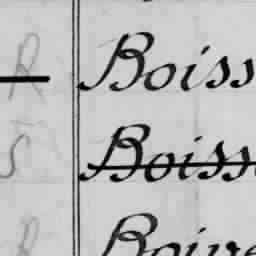 R Boiss
S Boiss
R Boive